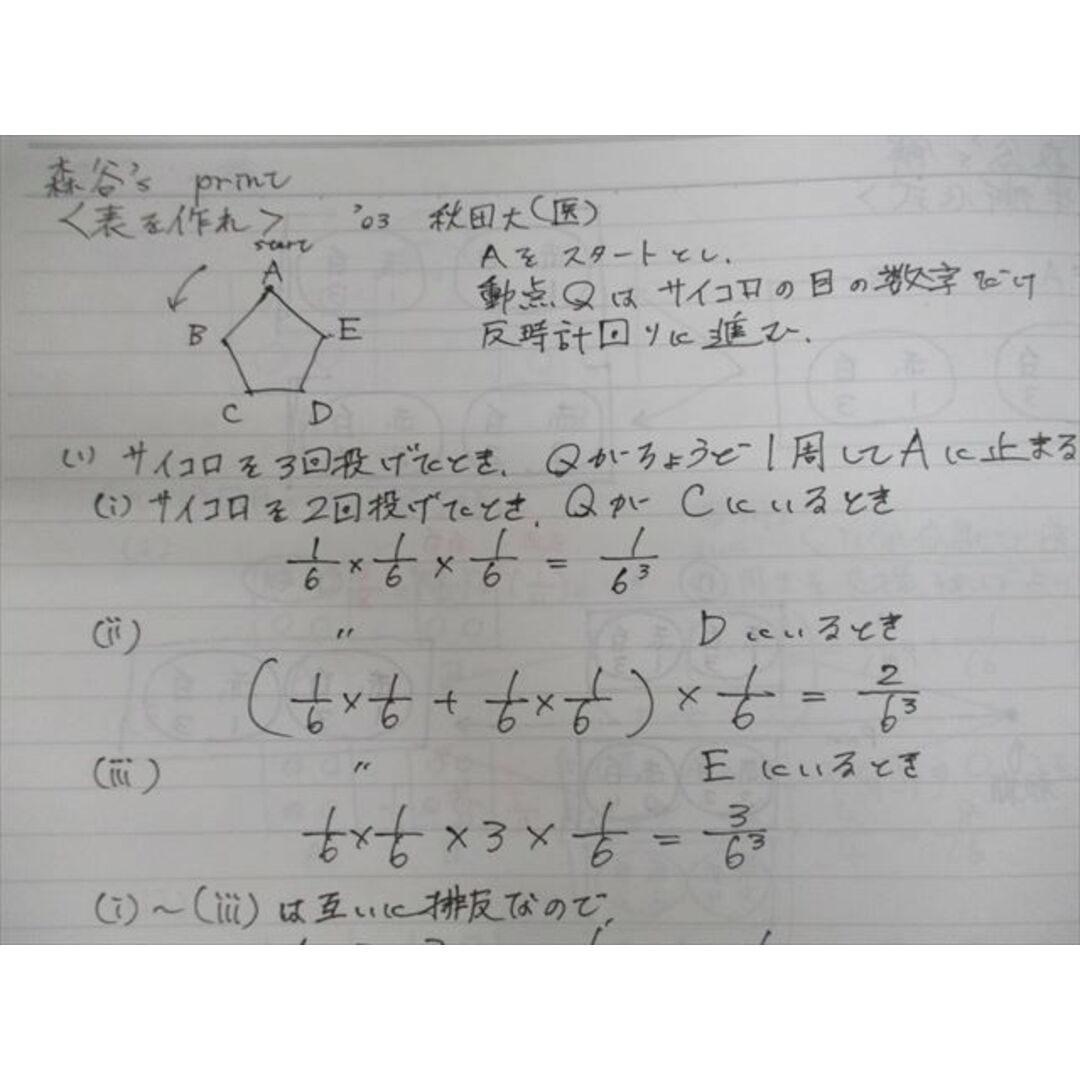 森谷's print
<表を作れ> '03 秋田大(医)
start
A
B
E
C
D
Aをスタートとし、
動点Qはサイコロの目の数字だけ
反時計回りに進む.
(1) サイコロを3回投げたとき、Qがちょうど1周してAに止まる
(i) サイコロを2回投げたとき、QがCにいるとき
1/6 × 1/6 × 1/6 = 1/6³
(ii) 〃 Dにいるとき
(1/6 × 1/6 + 1/6 × 1/6) × 1/6 = 2/6³
(iii) 〃 Eにいるとき
1/6 × 1/6 × 3 × 1/6 = 3/6³
(i)~(iii)は互いに排反なので,